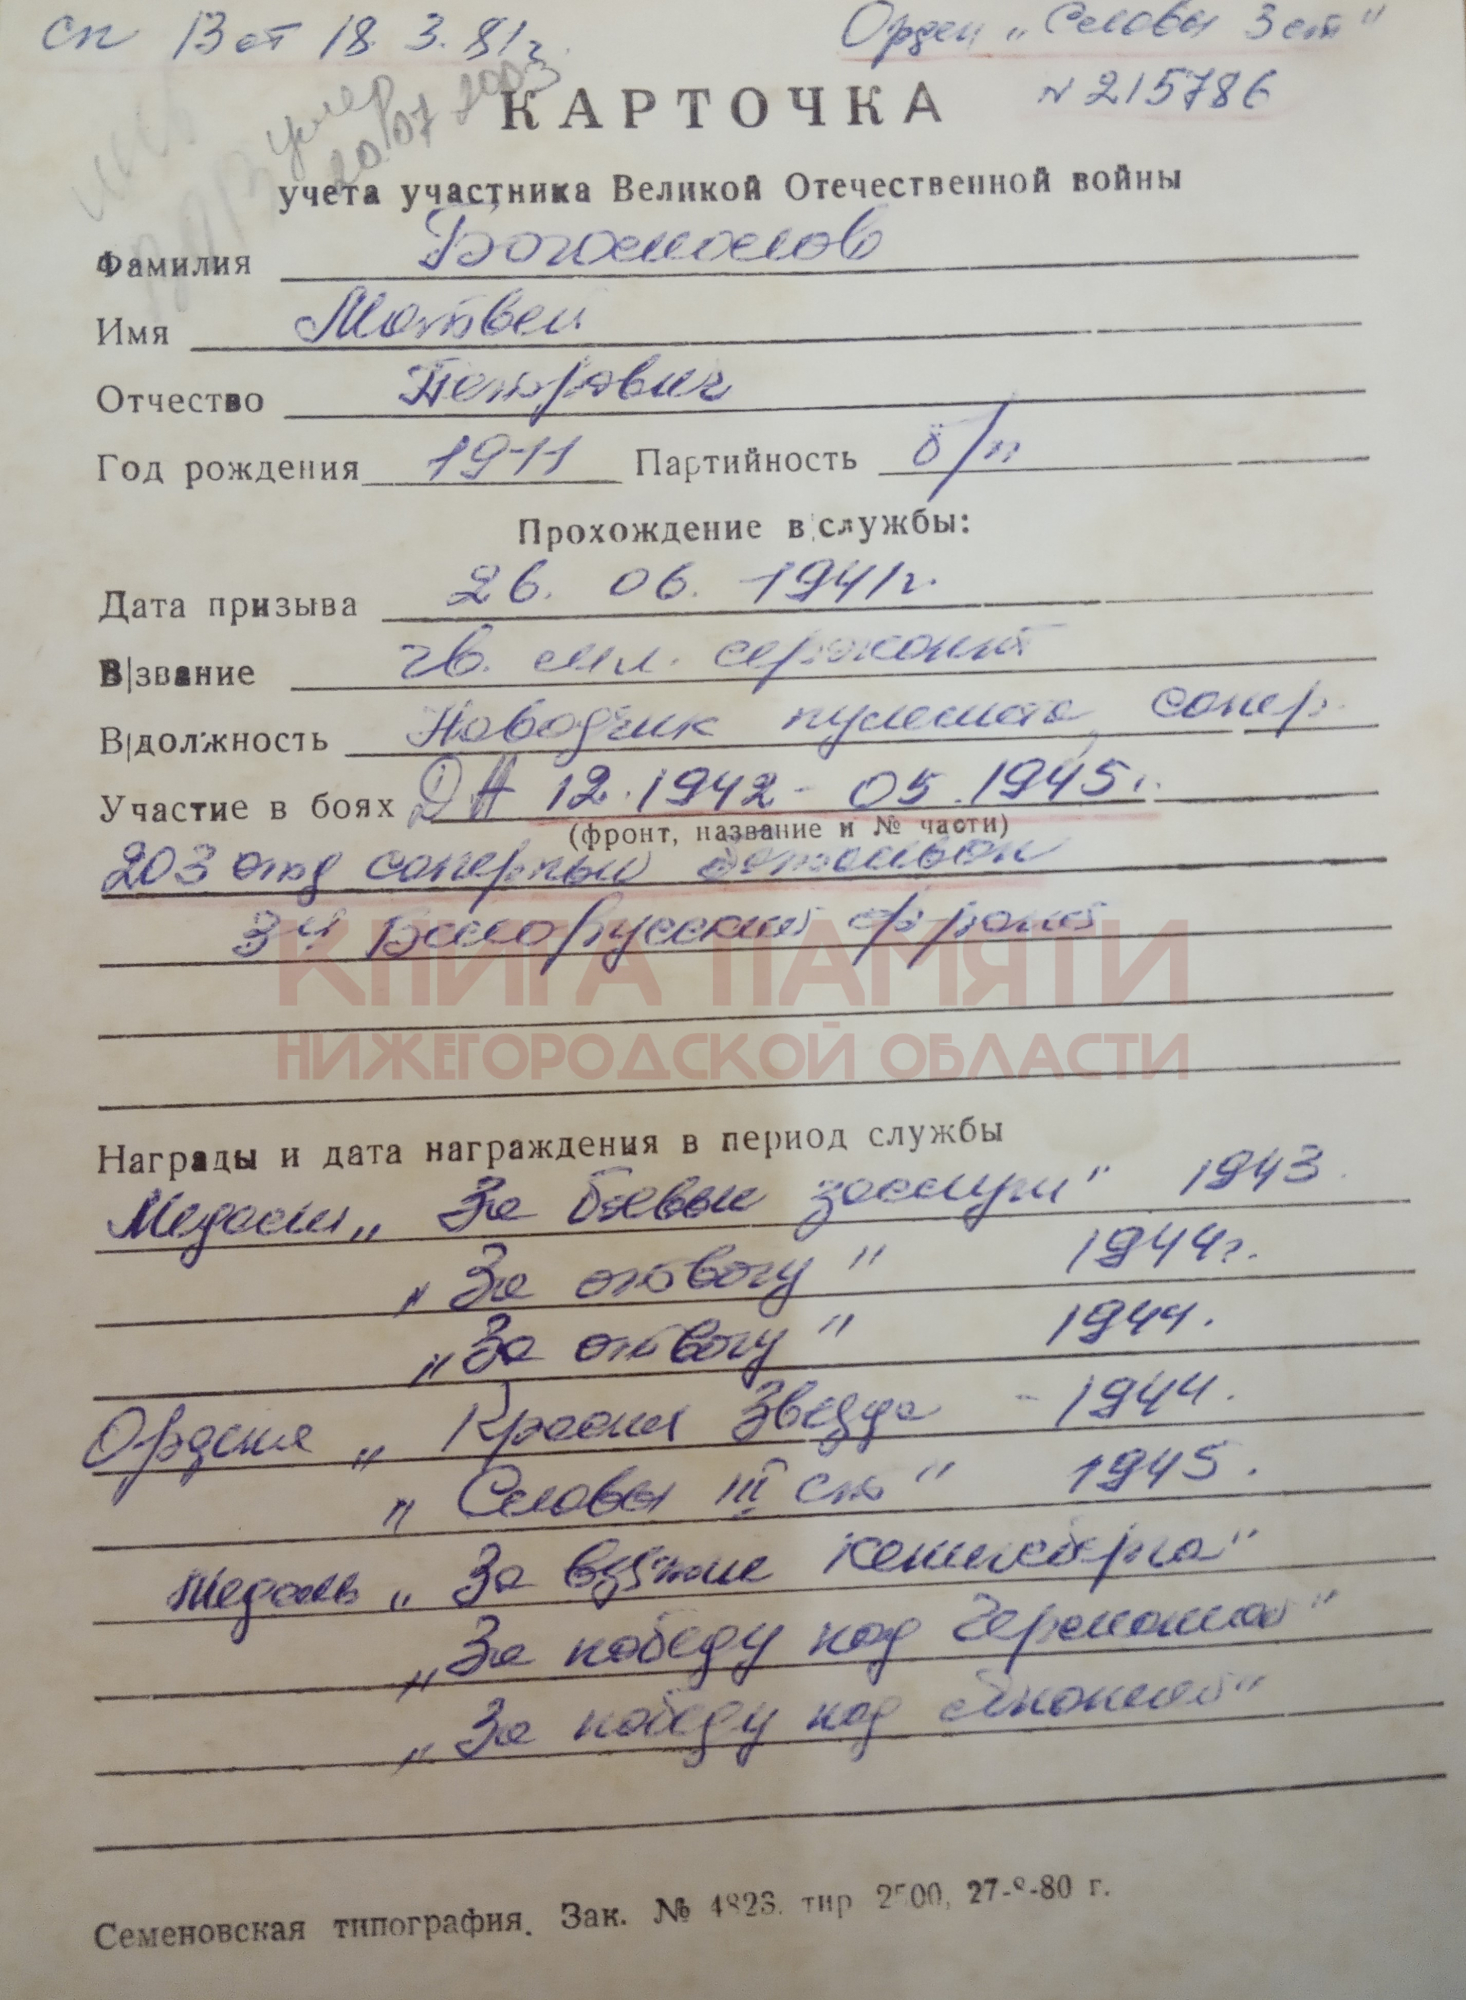 сп 13 от 18.3.81г. Орден „Славы 3 ст"
N 215786
умер
20.07 2003
КАРТОЧКА
учета участника Великой Отечественной войны
Фамилия Богомолов
Имя Матвей
Отчество Петрович
Год рождения 1911 Партийность б/п
Прохождение в|службы:
Дата призыва 26. 06. 1941г.
В|звание гв. мл. сержант
В|должность Наводчик пулемета, сапер.
Участие в боях ДА 12.1942 - 05.1945г.
(фронт, название и № части)
203 отд саперный батальон
3й Белорусский фронт
КНИГА ПАМЯТИ
НИЖЕГОРОДСКОЙ ОБЛАСТИ
Награды и дата награждения в период службы
Медали „За боевые заслуги" 1943.
„За отвагу" 1944г.
„За отвагу" 1944.
Ордена „Красная Звезда - 1944.
„Славы III ст" 1945.
медаль „За взятие Кенигсберга"
„За победу над Германией"
„За победу над Японией"
Семеновская типография. Зак. № 4823. тир 2500, 27-8-80 г.